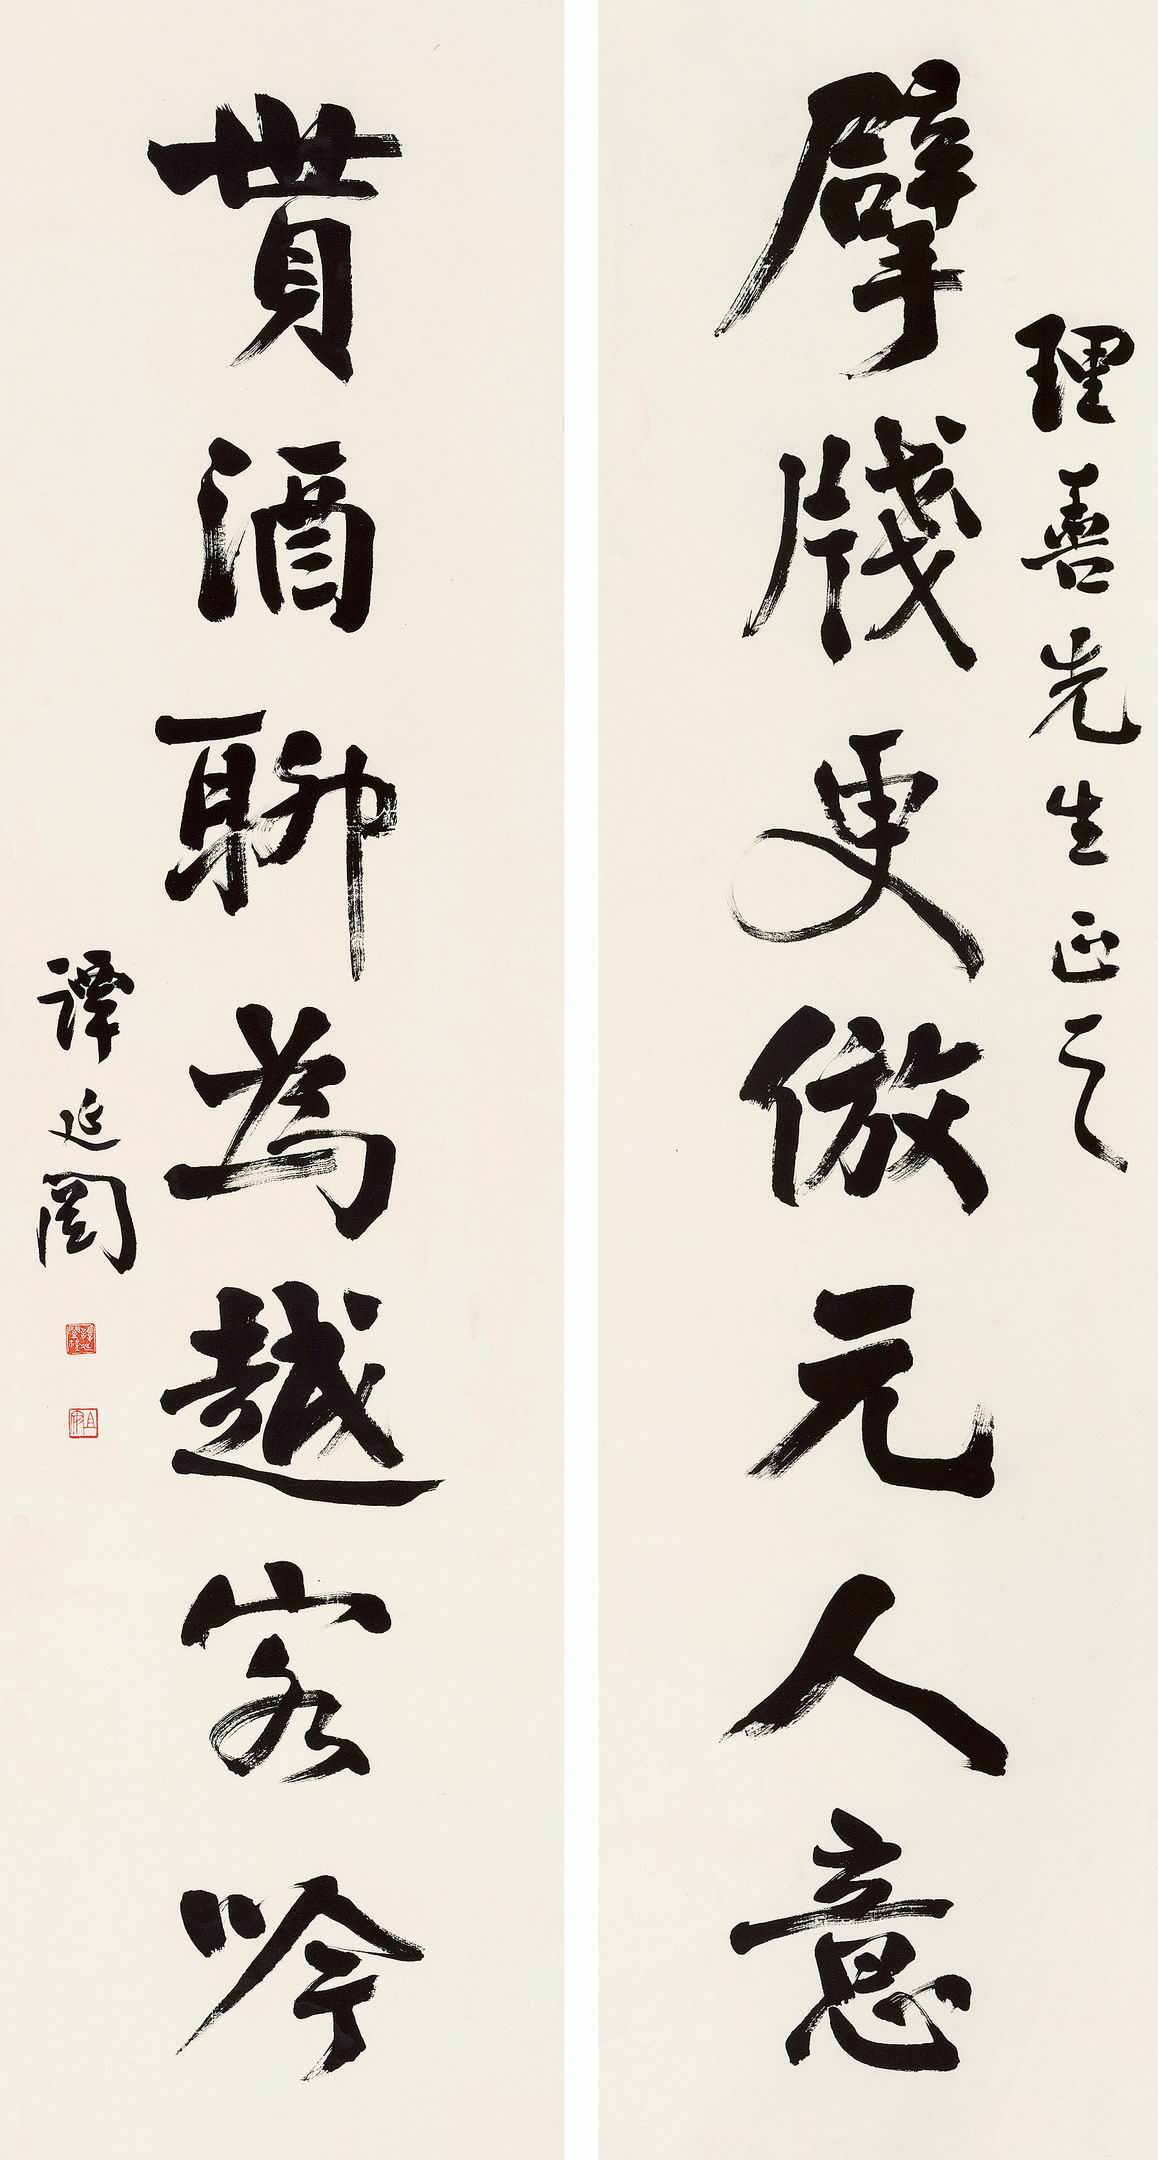 理善先生正之
擘牋更倣元人意
貰酒聊為越客吟
譚延闓